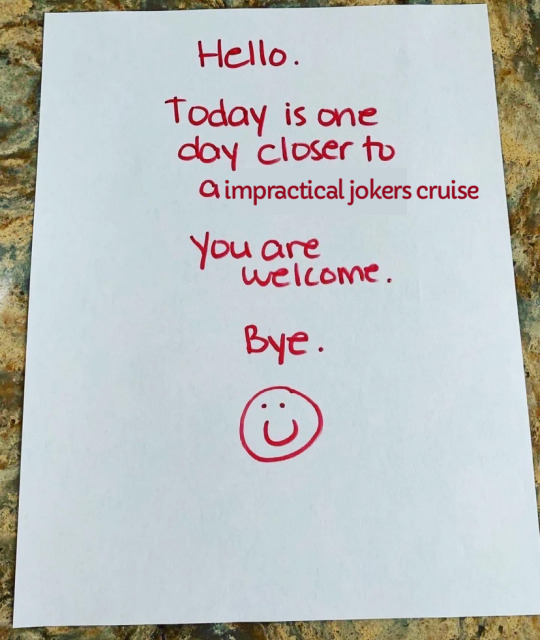 Hello.
Today is one
day closer to
a impractical jokers cruise
You are
welcome.
Bye.